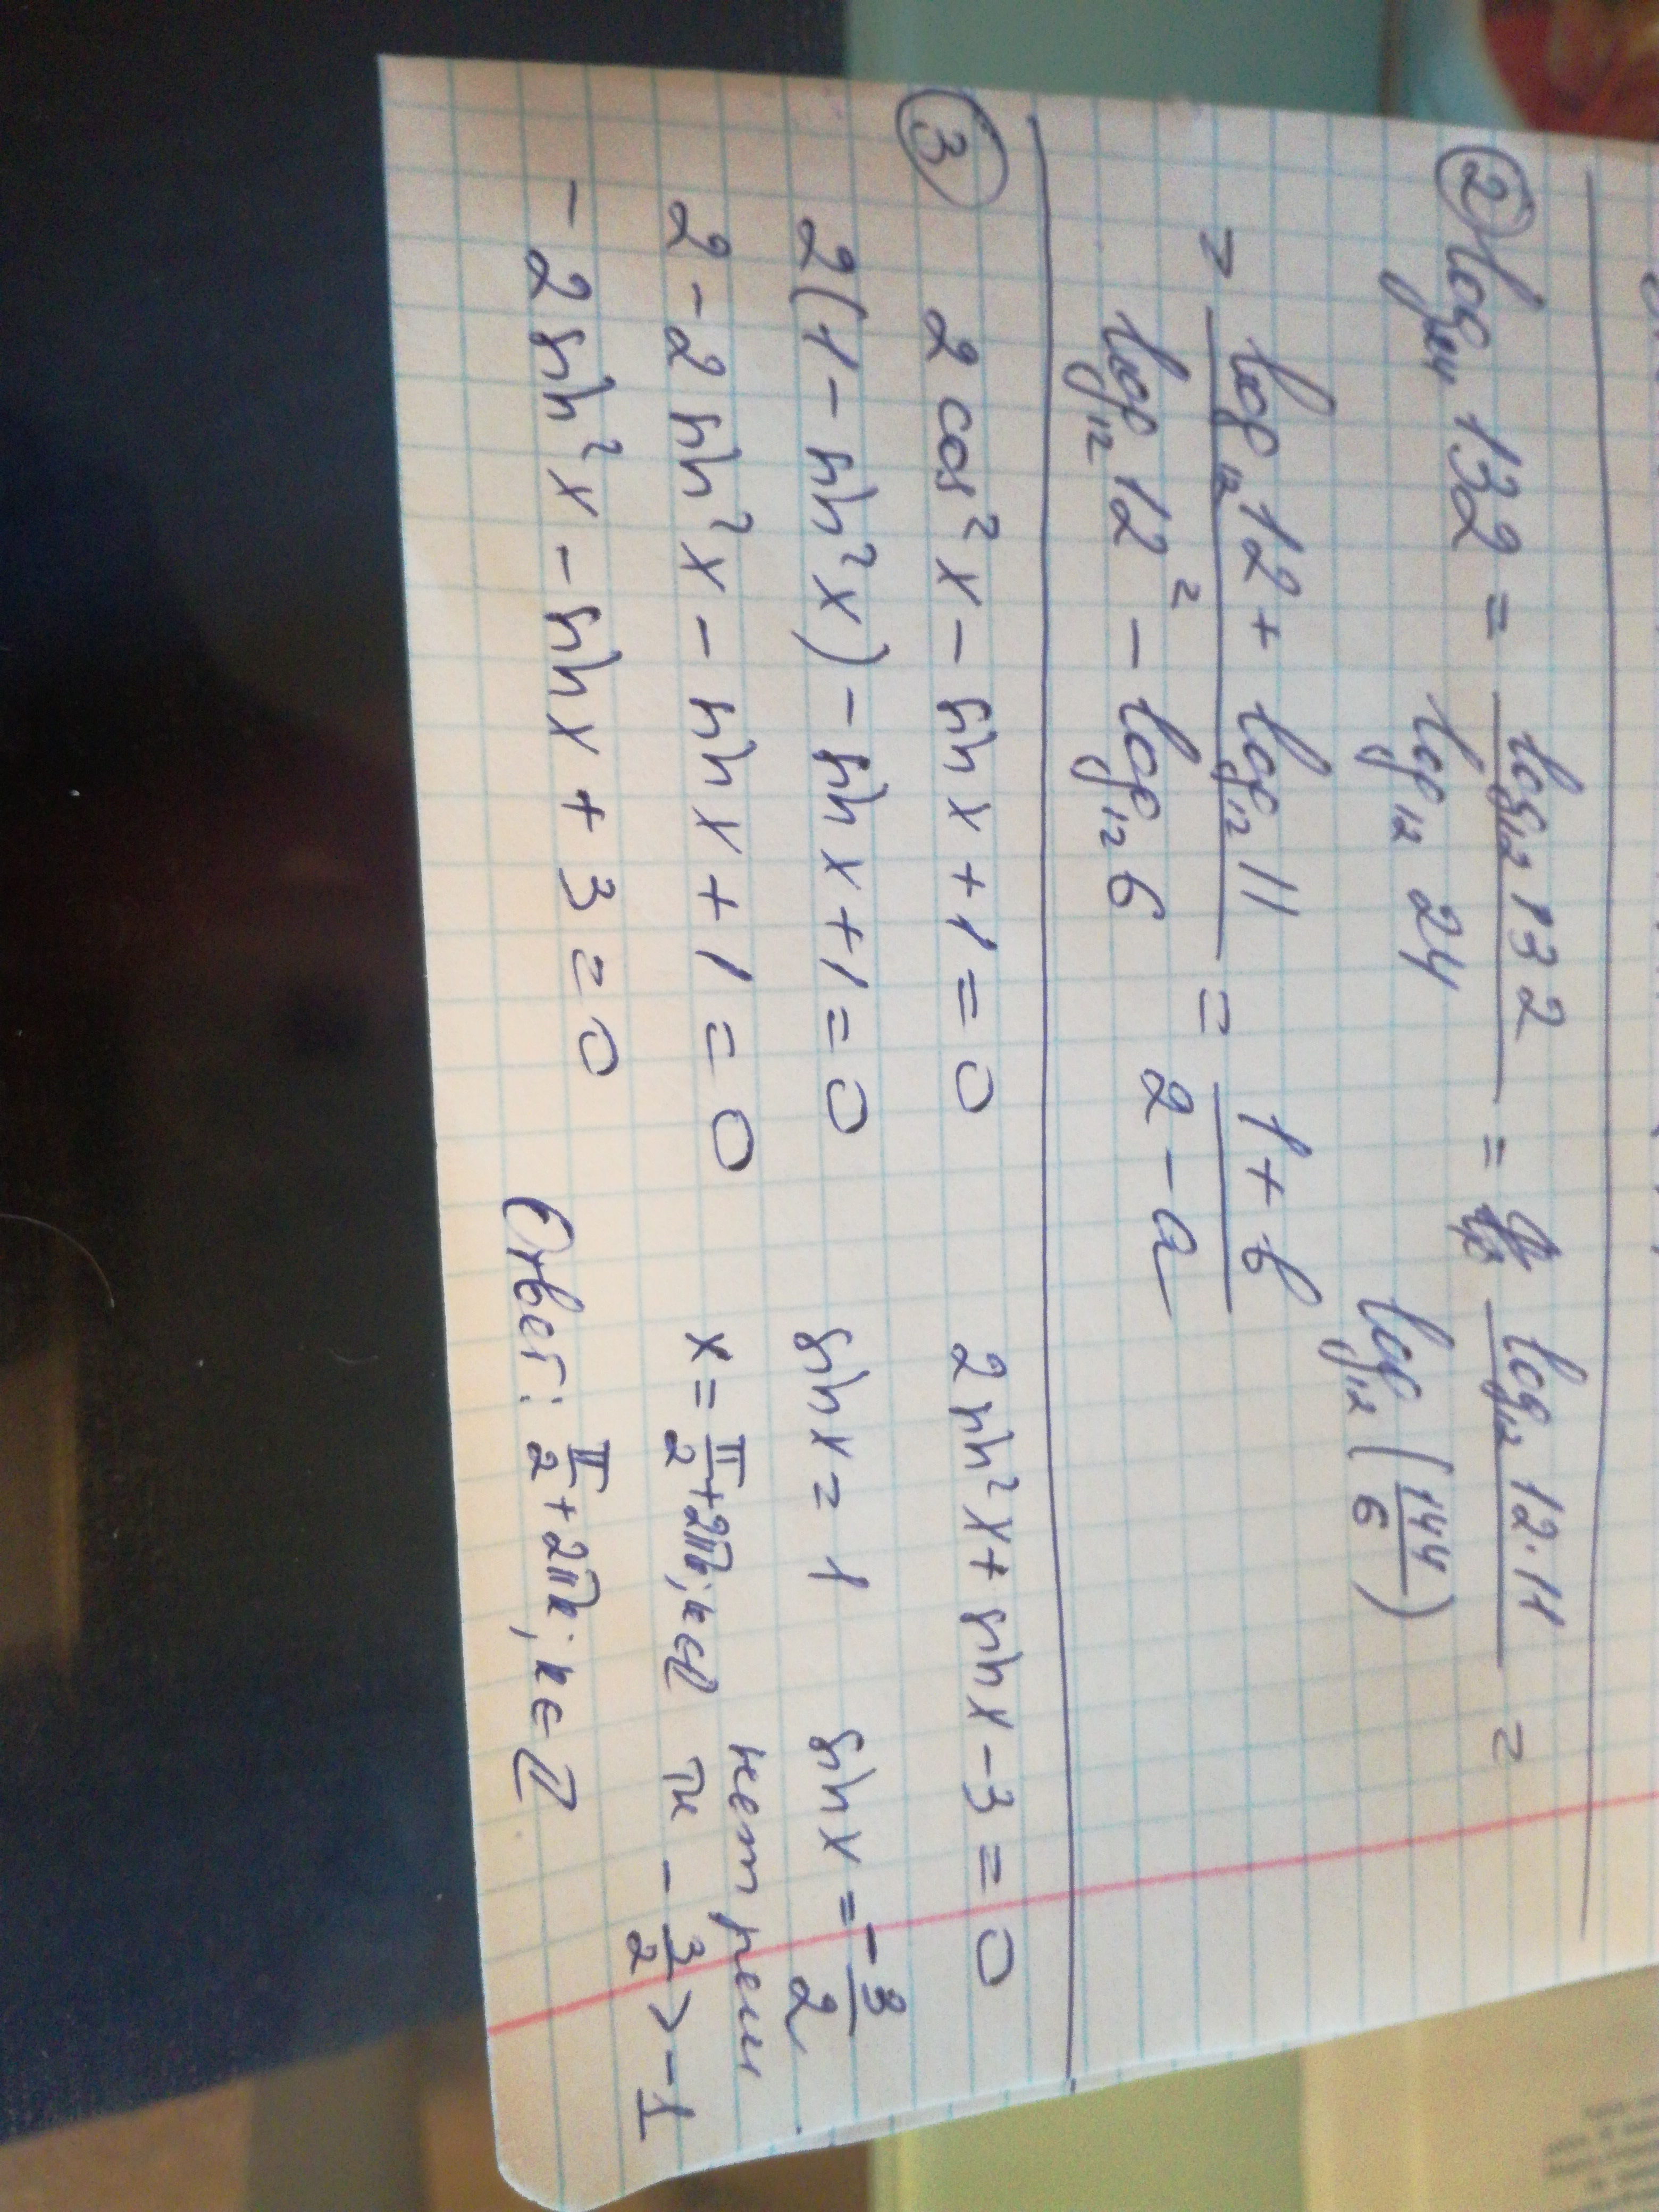 ② log₂₄ 132 = log₁₂ 132 / log₁₂ 24 = log₁₂ 12·11 / log₁₂ (144/6) =
= (log₁₂ 12 + log₁₂ 11) / (log₁₂ 12² - log₁₂ 6) = (1 + b) / (2 - a)
③ 2 cos² x - sin x + 1 = 0
2(1 - sin² x) - sin x + 1 = 0
2 - 2 sin² x - sin x + 1 = 0
- 2 sin² x - sin x + 3 = 0
2 sin² x + sin x - 3 = 0
sin x = 1 sin x = - 3/2
x = π/2 + 2πk; k ∈ Z нет реш
тк - 3/2 > -1
Ответ: π/2 + 2πk; k ∈ Z